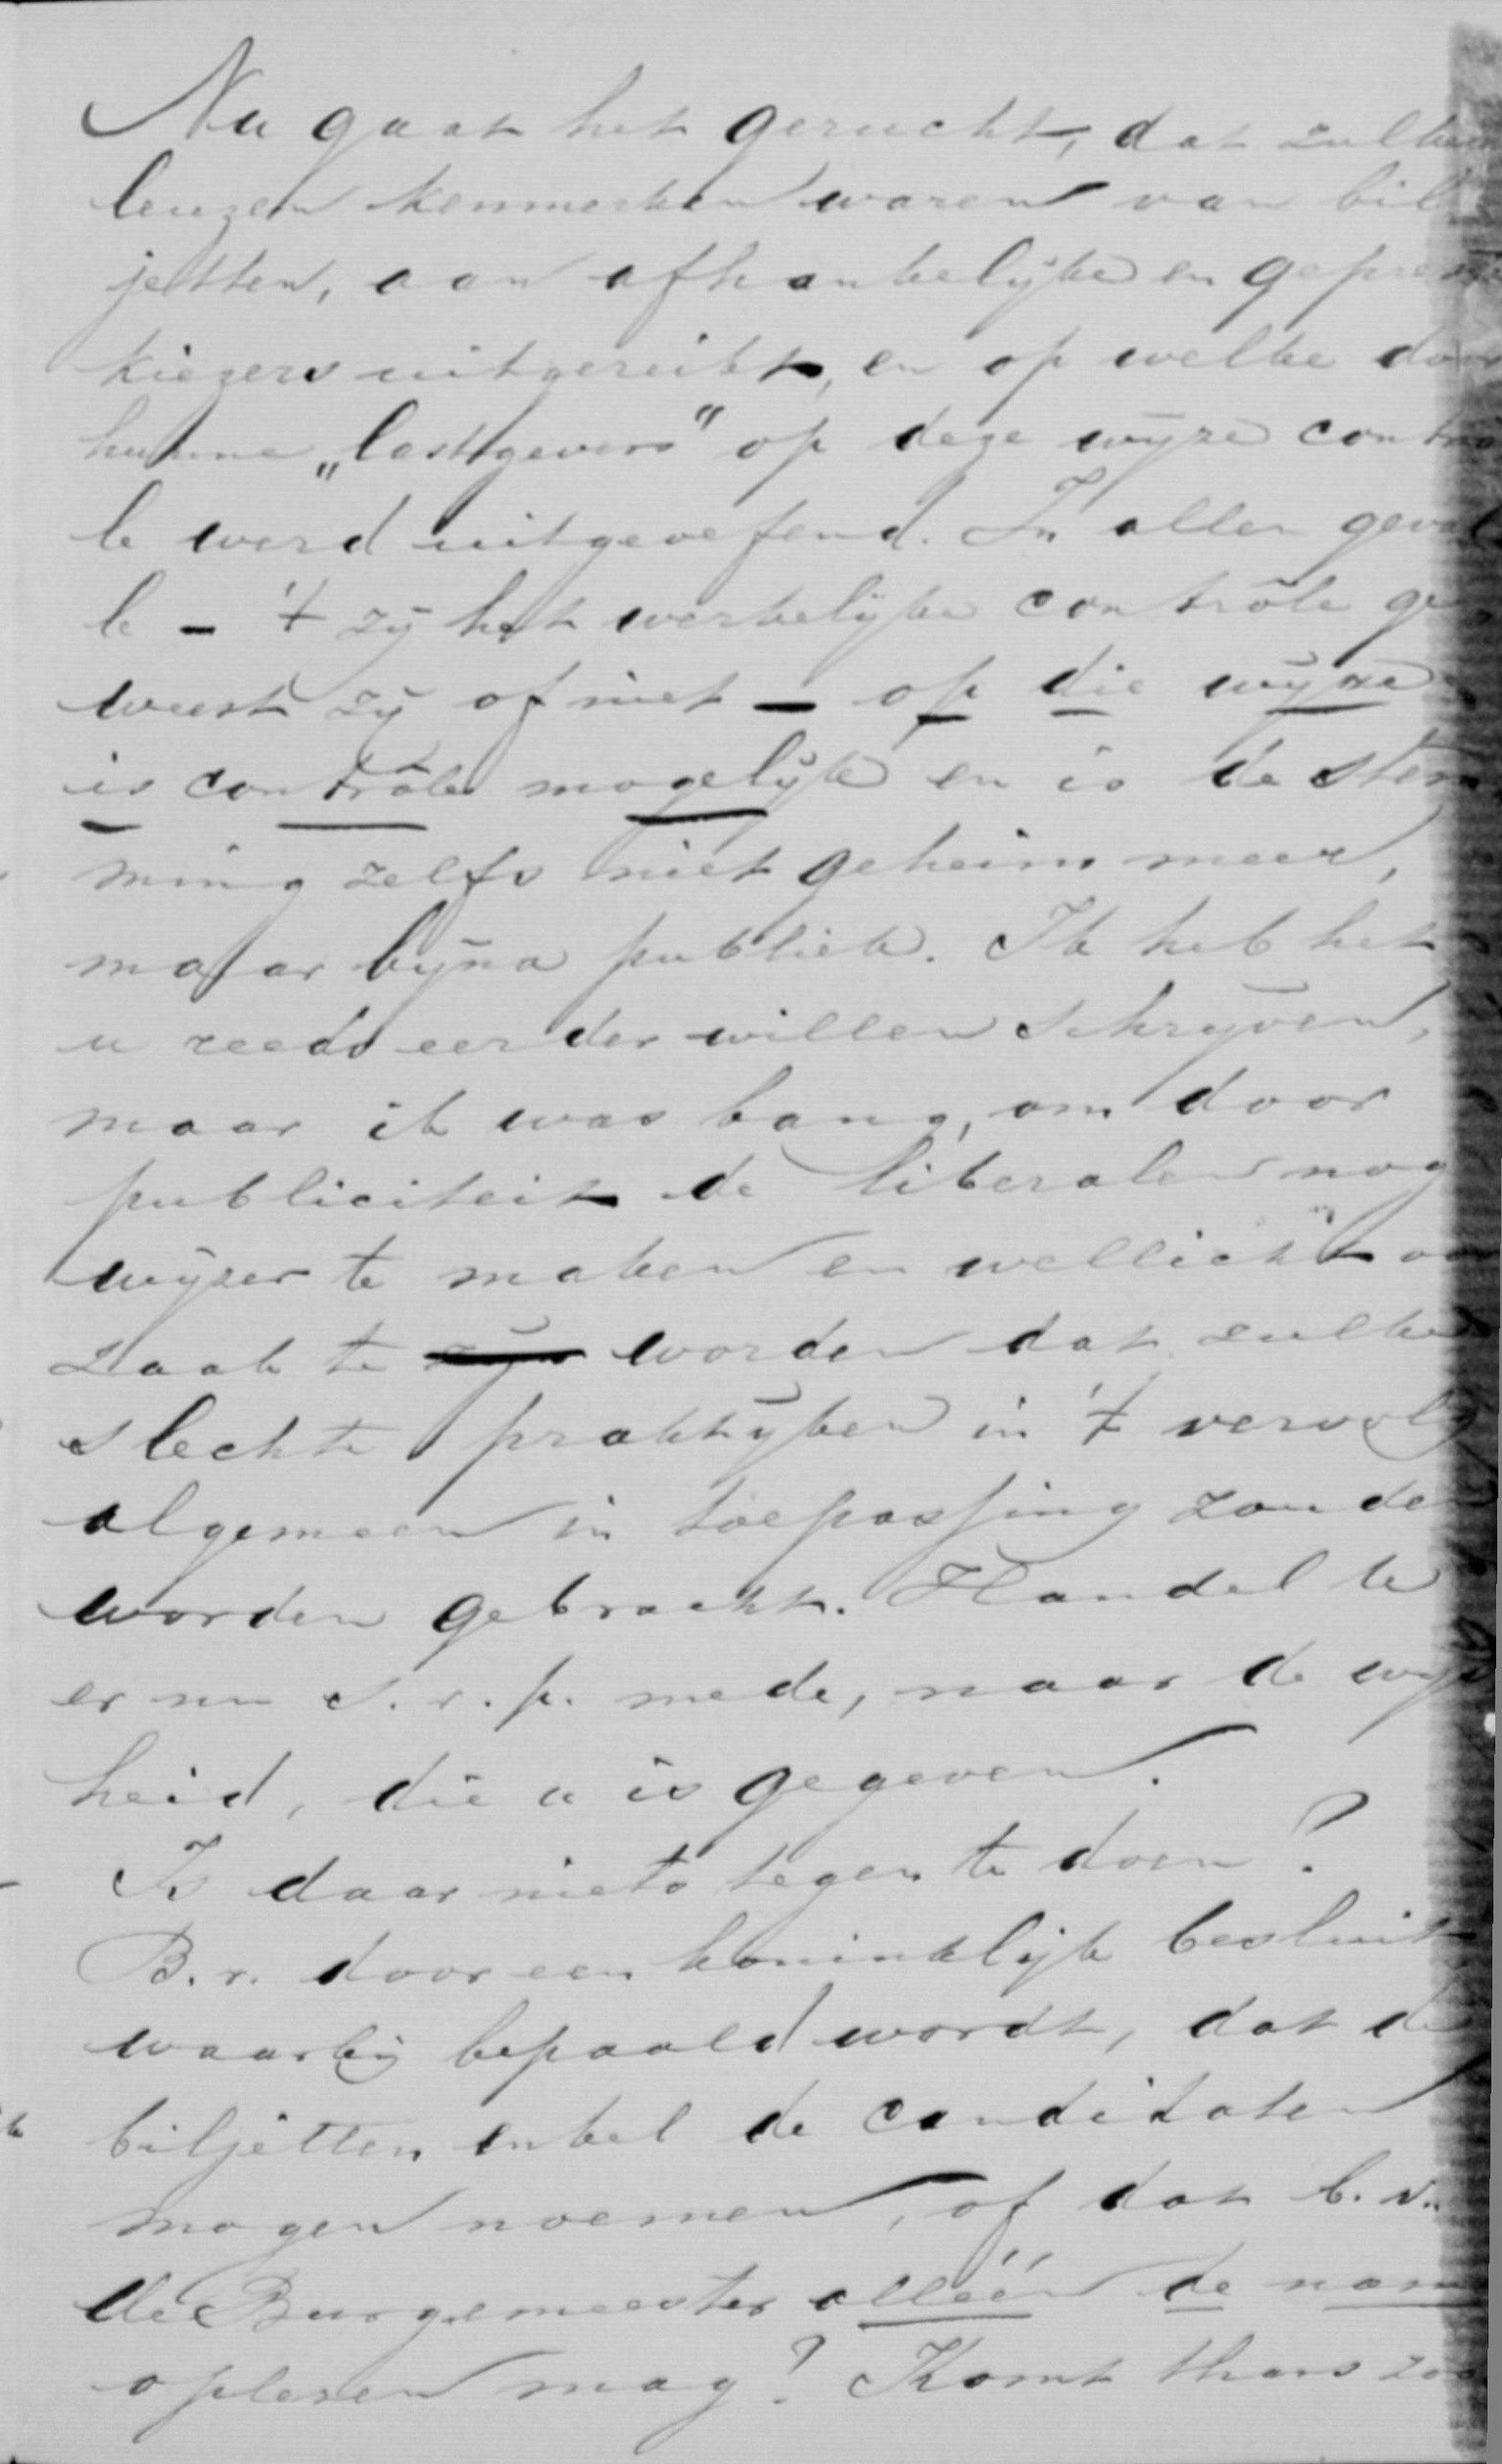 Nu gaat het gerucht, dat zulken
leuzen kenmerken waren van bil
jetten, aan afhankelijke en gepres
kiezers uitgereikt, en op welke door
hunne „lastgevers" op deze wijze contrô
le werd uitgeoefend. In allen geval
le - 't zij het werkelijke contrôle ge
weest zij of niet - op die wijze
is contrôle mogelijk en is de stem
ming zelfs niet geheim meer,
maar bijna publiek. Ik heb het
u reeds eerder willen schrijven,
maar ik was bang, om door
publiciteit de liberalen nog
wijzer te maken en wellicht oor
zaak te zijn worden dat zulke
slechte praktijken in 't vervolg
algemeen in toepassing zouden
worden gebracht. Handel U
er nu s.v.p. mede, naar de wijs
heid, die u is gegeven.
Is daar niets tegen te doen?
B.v. door een koninklijk besluit
waarbij bepaald wordt, dat de
biljetten enkel de candidaten
mogen noemen, of dat b.v.
de Burgemeester alléén de name
oplezen mag? Komt thans zoo